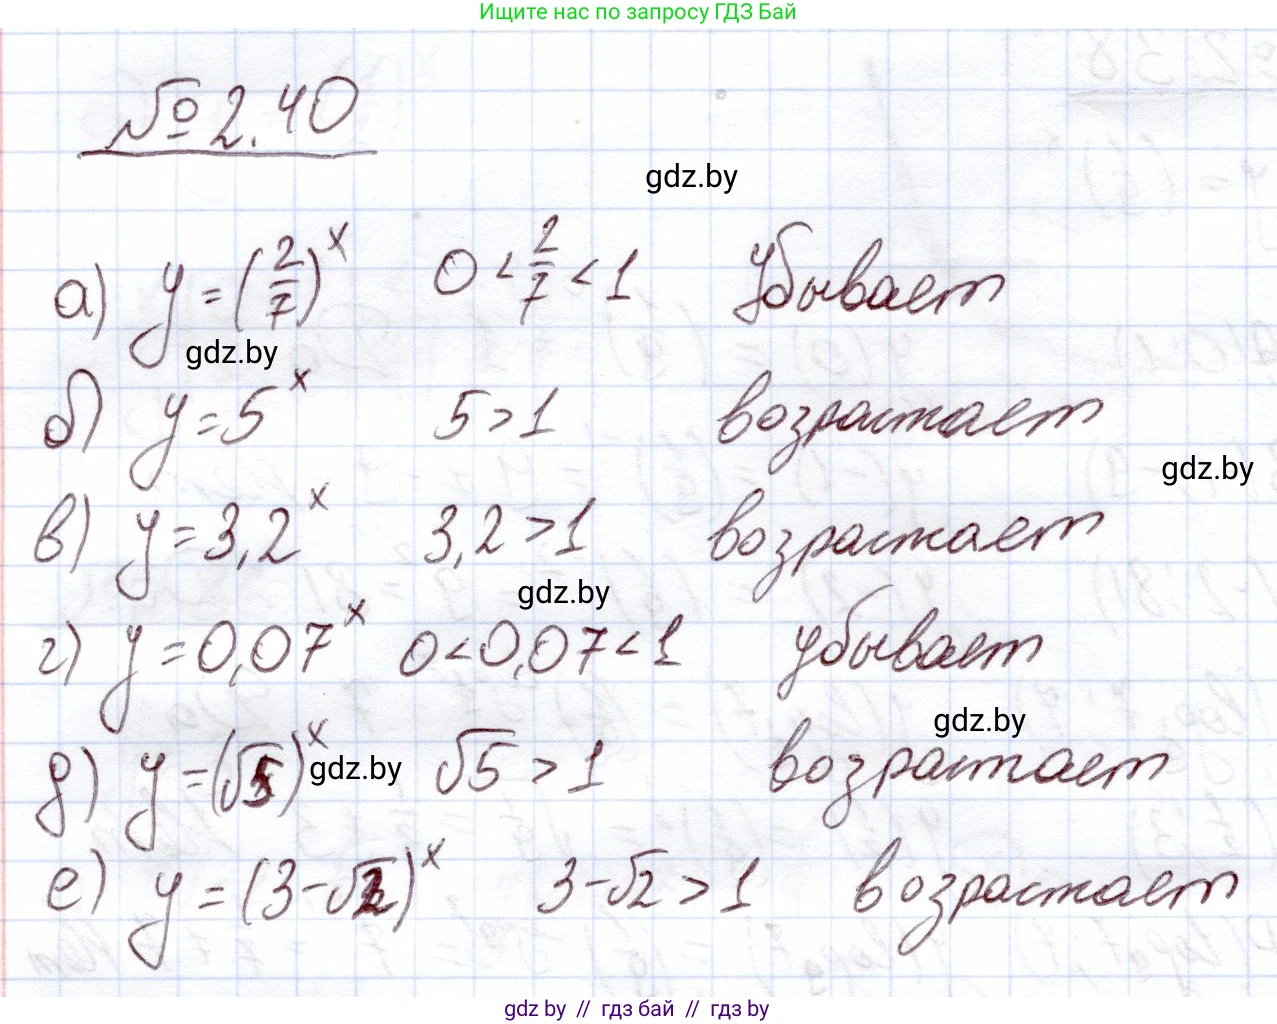 Ищите нас по запросу ГДЗ Бай
№ 2.40
gdz.by
а) y = (2/7)^x 0 < 2/7 < 1 убывает
gdz.by
б) y = 5^x 5 > 1 возрастает
gdz.by
в) y = 3,2^x 3,2 > 1 возрастает
gdz.by
г) y = 0,07^x 0 < 0,07 < 1 убывает
gdz.by
д) y = (√5)^x √5 > 1 возрастает
gdz.by
е) y = (3 - √2)^x 3 - √2 > 1 возрастает
gdz by // гдз бай // гдз by